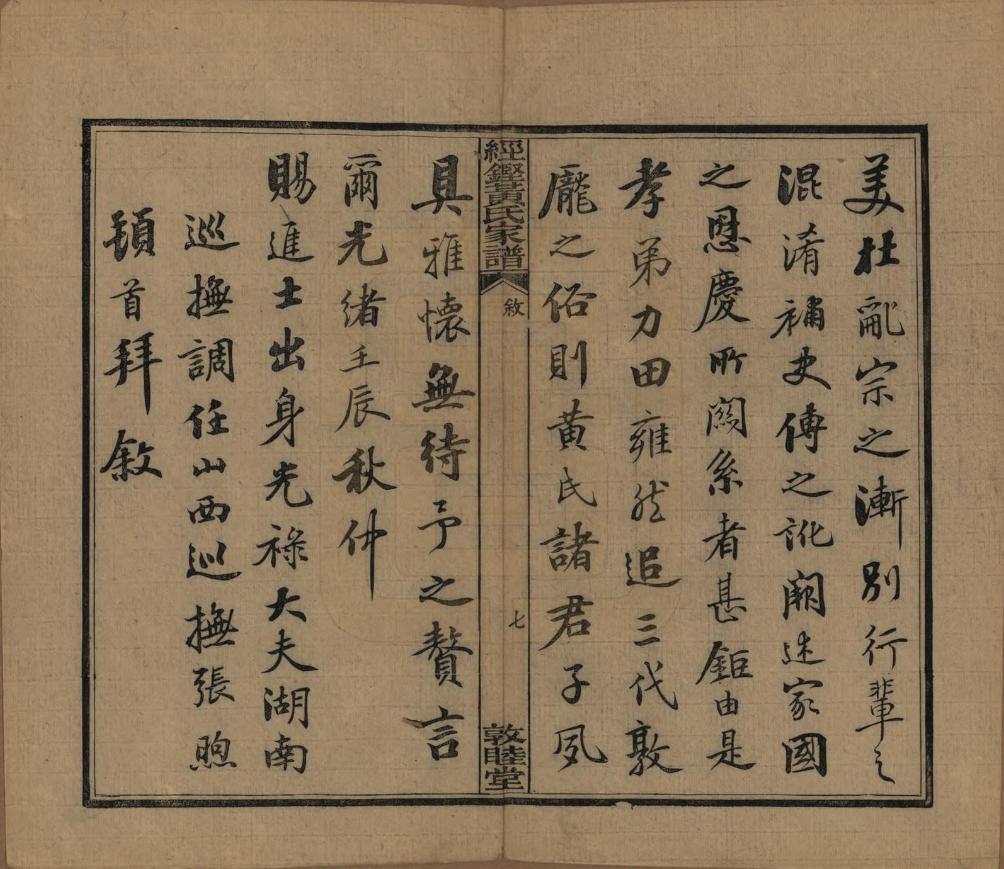 美杜亂宗之漸別行輩之
混淆補史傳之訛闕述家國
之恩慶所關系者甚鉅由是
孝弟力田雍然追三代敦
龐之俗則黄氏諸君子夙
經鏗黃氏家譜
敘
七
敦睦堂
具雅懷無待予之贅言
爾光緒壬辰秋仲
賜進士出身光祿大夫湖南
巡撫調任山西巡撫張煦
頓首拜敘